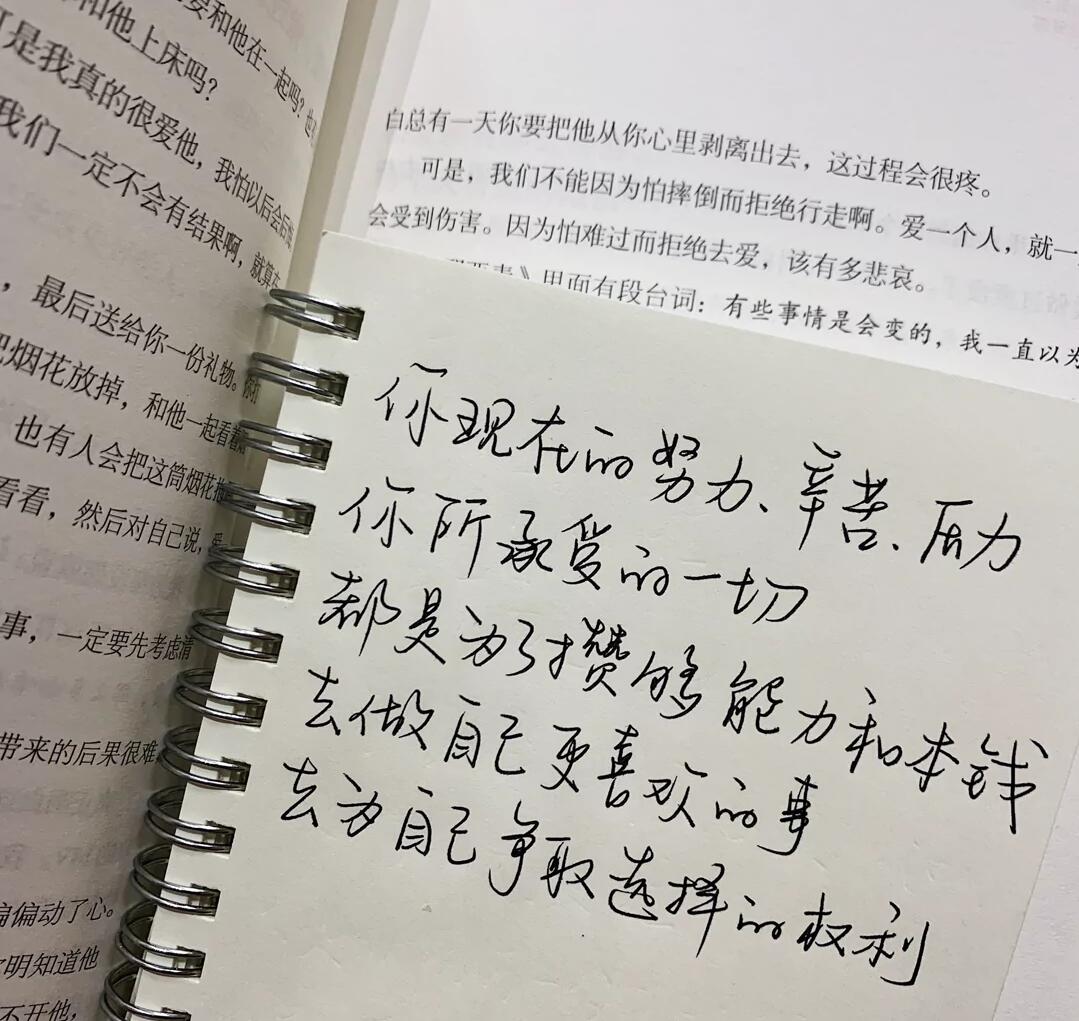 要和他在一起吗？
和他上床吗？
可是我真的很爱他，我怕以后会后悔
我们一定不会有结果啊，就算
，最后送给你一份礼物。
把烟花放掉，和他一起看着
也有人会把这筒烟花
看看，然后对自己说，
事，一定要先考虑清
带来的后果很难
偏偏动了心。
明知道他
不开他，
白总有一天你要把他从你心里剥离出去，这过程会很疼。
可是，我们不能因为怕摔倒而拒绝行走啊。爱一个人，就一
会受到伤害。因为怕难过而拒绝去爱，该有多悲哀。
》里面有段台词：有些事情是会变的，我一直以为
你现在的努力、辛苦、压力
你所承受的一切
都是为了攒够能力和本钱
去做自己更喜欢的事
去为自己争取选择的权利